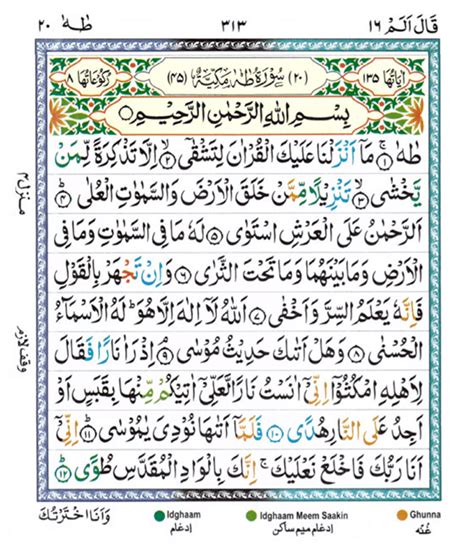 قَالَ اَلَمْ ١٦ ٣١٣ طٰهٰ ٢٠
اٰيَاتُهَا ١٣٥ (٢٠) سُوْرَةُ طٰهٰ مَكِّيَّةٌ (٤٥) رُكُوْعَاتُهَا ٨
بِسْمِ اللّٰهِ الرَّحْمٰنِ الرَّحِيْمِ
طٰهٰ ۚ﴿١﴾ مَاۤ اَنْزَلْنَا عَلَيْكَ الْقُرْاٰنَ لِتَشْقٰۤى ۙ﴿٢﴾ اِلَّا تَذْكِرَةً لِّمَنْ
يَّخْشٰى ۙ﴿٣﴾ تَنْزِيْلًا مِّمَّنْ خَلَقَ الْاَرْضَ وَالسَّمٰوٰتِ الْعُلٰى ؕ﴿٤﴾
اَلرَّحْمٰنُ عَلَى الْعَرْشِ اسْتَوٰى ﴿٥﴾ لَهٗ مَا فِى السَّمٰوٰتِ وَمَا فِى
الْاَرْضِ وَمَا بَيْنَهُمَا وَمَا تَحْتَ الثَّرٰى ﴿٦﴾ وَاِنْ تَجْهَرْ بِالْقَوْلِ
فَاِنَّهٗ يَعْلَمُ السِّرَّ وَاَخْفٰى ﴿٧﴾ اَللّٰهُ لَاۤ اِلٰهَ اِلَّا هُوَ ؕ لَهُ الْاَسْمَآءُ
الْحُسْنٰى ﴿٨﴾ وَهَلْ اَتٰىكَ حَدِيْثُ مُوْسٰى ۘ﴿٩﴾ اِذْ رَاٰ نَارًا فَقَالَ
لِاَهْلِهِ امْكُثُوْۤا اِنِّىْۤ اٰنَسْتُ نَارًا لَّعَلِّىْۤ اٰتِيْكُمْ مِّنْهَا بِقَبَسٍ اَوْ
اَجِدُ عَلَى النَّارِ هُدًى ﴿١٠﴾ فَلَمَّاۤ اَتٰىهَا نُوْدِىَ يٰمُوْسٰى ؕ﴿١١﴾ اِنِّىْۤ
اَنَا رَبُّكَ فَاخْلَعْ نَعْلَيْكَ ۚ اِنَّكَ بِالْوَادِ الْمُقَدَّسِ طُوًى ؕ﴿١٢﴾
وَاَنَا اخْتَرْتُكَ
منزل ٤
وقف لازم
Idghaam
ادغام
Idghaam Meem Saakin
ادغام میم ساکن
Ghunna
غنه